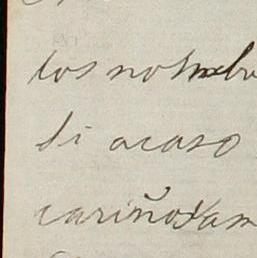 los nombr
si acaso
cariñosam